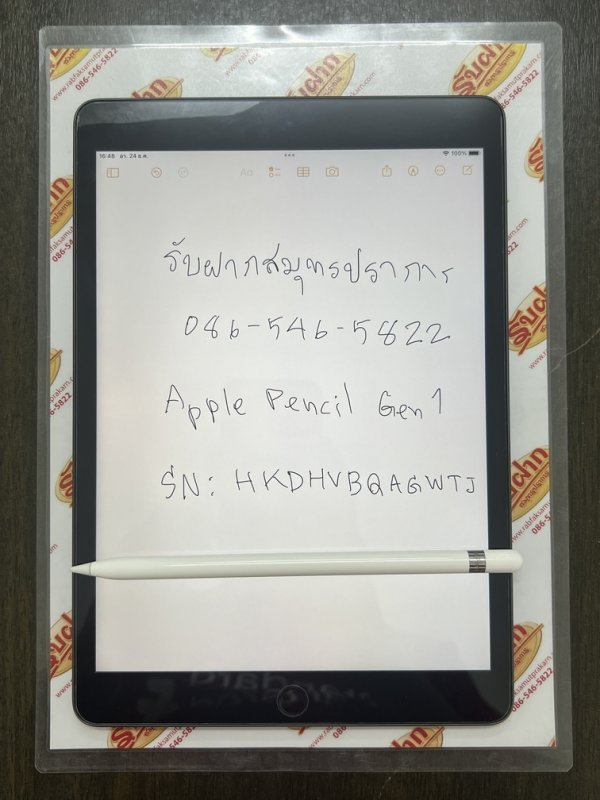 16:48 อา. 24 ธ.ค.
100%
Aa
รับฝากสมุทรปราการ
086-546-5822
Apple Pencil Gen 1
SN: HKDHVBQAGWTJ
รับฝาก
www.rabfaksamutprakarn.com
086-546-5822